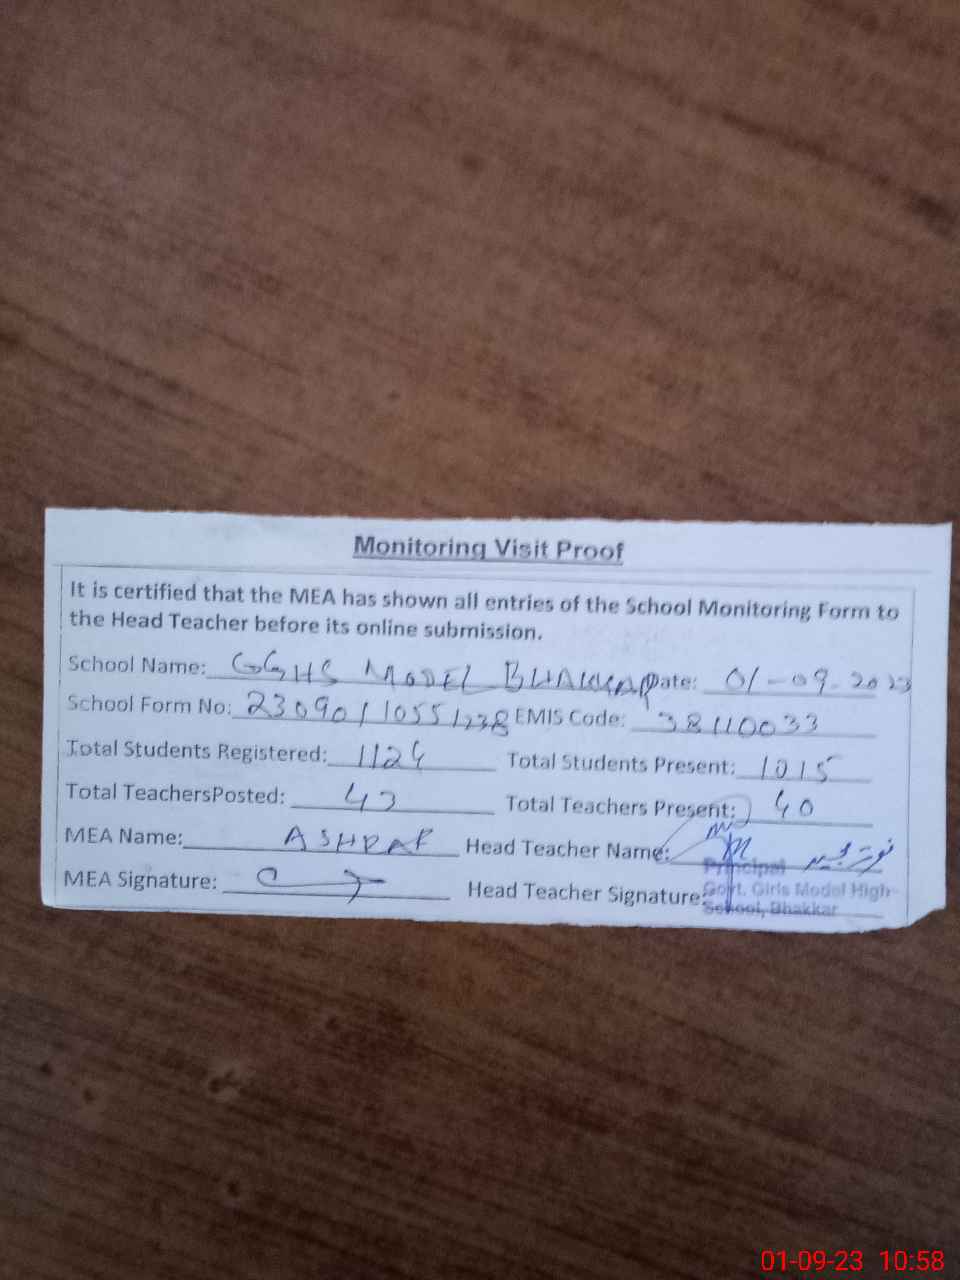 Monitoring Visit Proof
It is certified that the MEA has shown all entries of the School Monitoring Form to
the Head Teacher before its online submission.
School Name: GGHS MODEL BHAKKAR Date: 01-09-2023
School Form No: 23090110551238 EMIS Code: 38110033
Total Students Registered: 1124 Total Students Present: 1015
Total TeachersPosted: 43 Total Teachers Present: 40
MEA Name: ASHRAF Head Teacher Name:
MEA Signature: Head Teacher Signature
Principal
Govt. Girls Model High
School, Bhakkar
01-09-23 10:58